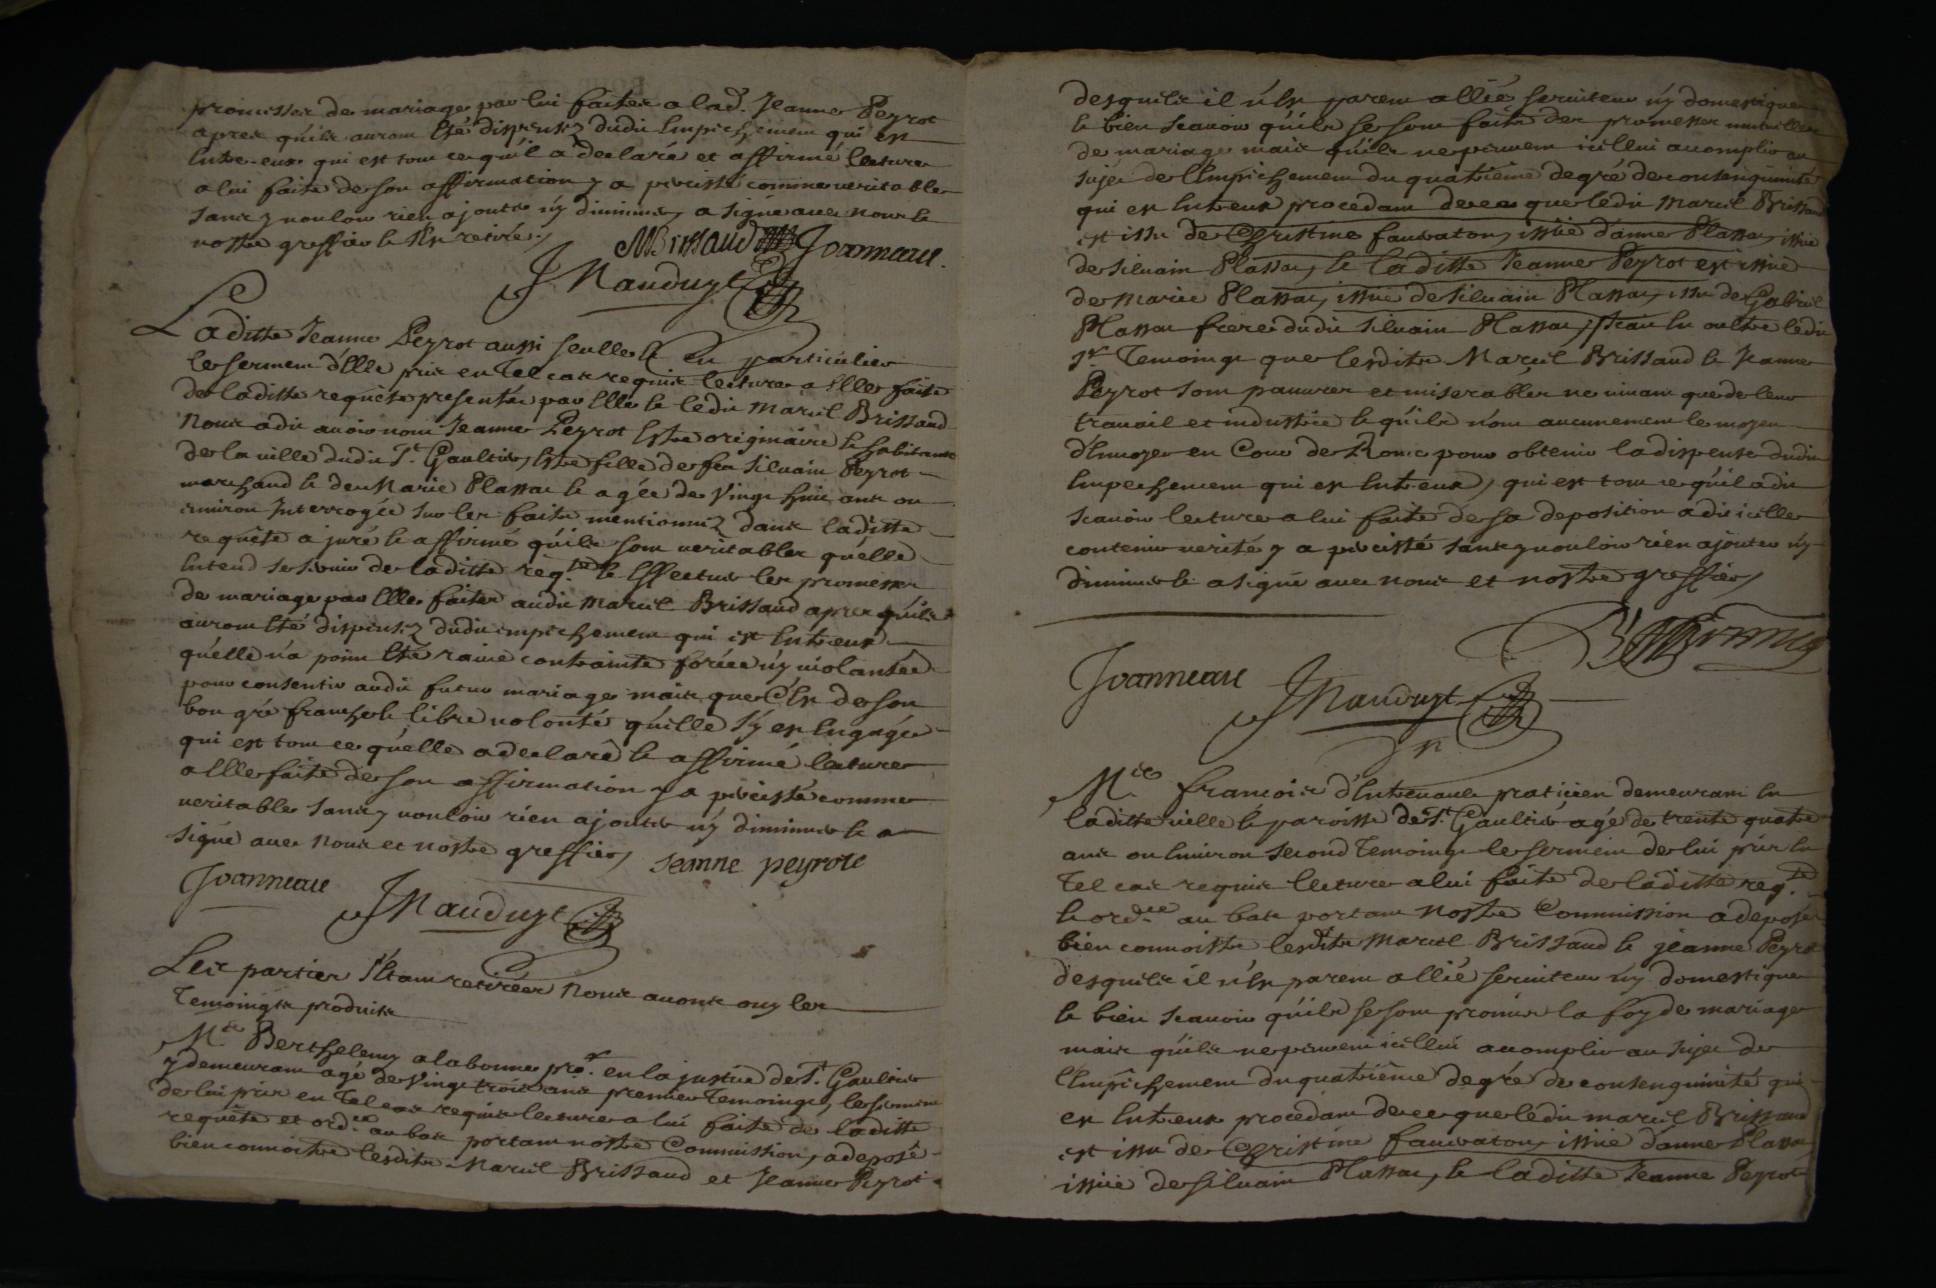 promesses de mariage par lui faites a lad. Jeanne Peyrot
apres qu'ils auront Eté dispensez dudit Empeschement qui est
Entre-eux qui est tout ce qu'il a declaré et affirmé lecture
a lui faite de son affirmation y a percisté comme veritable
sans y vouloir rien ajouter n'y diminuer, a signé avec nous Et
nostre greffier Et s'Est retiré./
MBrissaud Joanneau.
J Nauduyt
Laditte Jeanne Peyrot aussi seulle Et En particulier
le serment d'Elle pris en Tel cas requis lecture a Elle faite
de laditte requête presentée par Elle Et ledit Marcil Brissaud
Nous a dit avoir nom Jeanne Peyrot Estre originaire Et habitante
de la ville dudit St. Gaultier, Estre fille de feu Silvain Peyrot
marchand Et de Marie Plassat Et agée de Vingt huit ans ou
environ Interrogée sur les faits mentionnez dans laditte
requête a juré Et affirmé qu'ils sont veritables qu'elle
Entend se servir de laditte reqte. Et Effectuer les promesses
de mariage par Elle faites audit Marcil Brissaud apres qu'ils
auront Eté dispensez dudit empeschement qui est Entr'eux
qu'elle n'a point Eté ravie contrainte forcée n'y violantée
pour consentir audit futur mariage mais que C'Est de son
bon gré franche Et libre volonté qu'elle s'y est Engagée
qui est tout ce qu'elle a declaré Et affirmé lecture
a Elle faite de son affirmation y a percisté comme
veritable sans y vouloir rien ajouter n'y diminuer Et a
signé avec nous et nostre greffier,
Jeanne peyrote
Joanneau J Nauduyt
Les parties s'Etant retirées Nous avons ouy les
Temoings produits
Me. Berthelemy alabonne pror. en la justice de St. Gaultier
y demeurant agé de Vingt trois ans premier Temoing, le serment
de lui pris en Tel cas requis lecture a lui faite de laditte
requête et ordce. au bas portant nostre Commission, a deposé
bien connoistre lesdits Marcil Brissaud et Jeanne Peyrot
desquels il n'Est parent allié serviteur n'y domestique
Et bien scavoir qu'ils se sont faits des promesses mutuelles
de mariage mais qu'ils ne peuvent icellui accomplir au
sujet de l'Empeschement du quatrieme degré de consenguinité
qui est Entr'eux procedant de ce que ledit Marcil Brissaud
est issu de Christine fauvaton, issüe d'anne Plassat, issüe
de Silvain Plassat, Et laditte Jeanne Peyrot est issüe
de Marie Plassat, issüe de Silvain Plassat, issu de Gabriel
Plassat frere dudit Silvain Plassat, scait En outre ledit
1er. Temoing que lesdits Marcil Brissaud Et Jeanne
Peyrot sont pauvres et miserables ne vivant que de leur
travail et industrie Et qu'ils n'ont aucunement le moyen
d'Envoyer en Cour de Rome pour obtenir la dispense dudit
Empeschement qui est Entr'eux, qui est tout ce qu'il a dit
scavoir lecture a lui faite de sa deposition a dit icelle
contenir verité y a percisté sans y vouloir rien ajouter n'y
diminuer Et a signé avec nous et nostre greffier,
Joanneau J Nauduyt
Me. francois d'Entrenaule praticien demeurant En
laditte ville Et paroisse de St. Gaultier agé de trente quatre
ans ou Environ second Temoing le serment de lui pris En
Tel cas requis lecture a lui faite de laditte reqte.
Et ordce. au bas portant Nostre Commission a deposé
bien connoistre lesdits Marcil Brissaud Et jeanne Peyrot
desquels il n'Est parent allié serviteur n'y domestique
Et bien scavoir qu'ils se sont promis la foy de mariage
mais qu'ils ne peuvent icellui accomplir au sujet de
l'Empeschement du quatrième degré de consenguinité qui
est Entr'eux procedant de ce que ledit marcil Brissaud
est issu de Christine fauvaton, issüe d'anne Plassat
issüe de Silvain Plassat, Et laditte Jeanne Peyrot